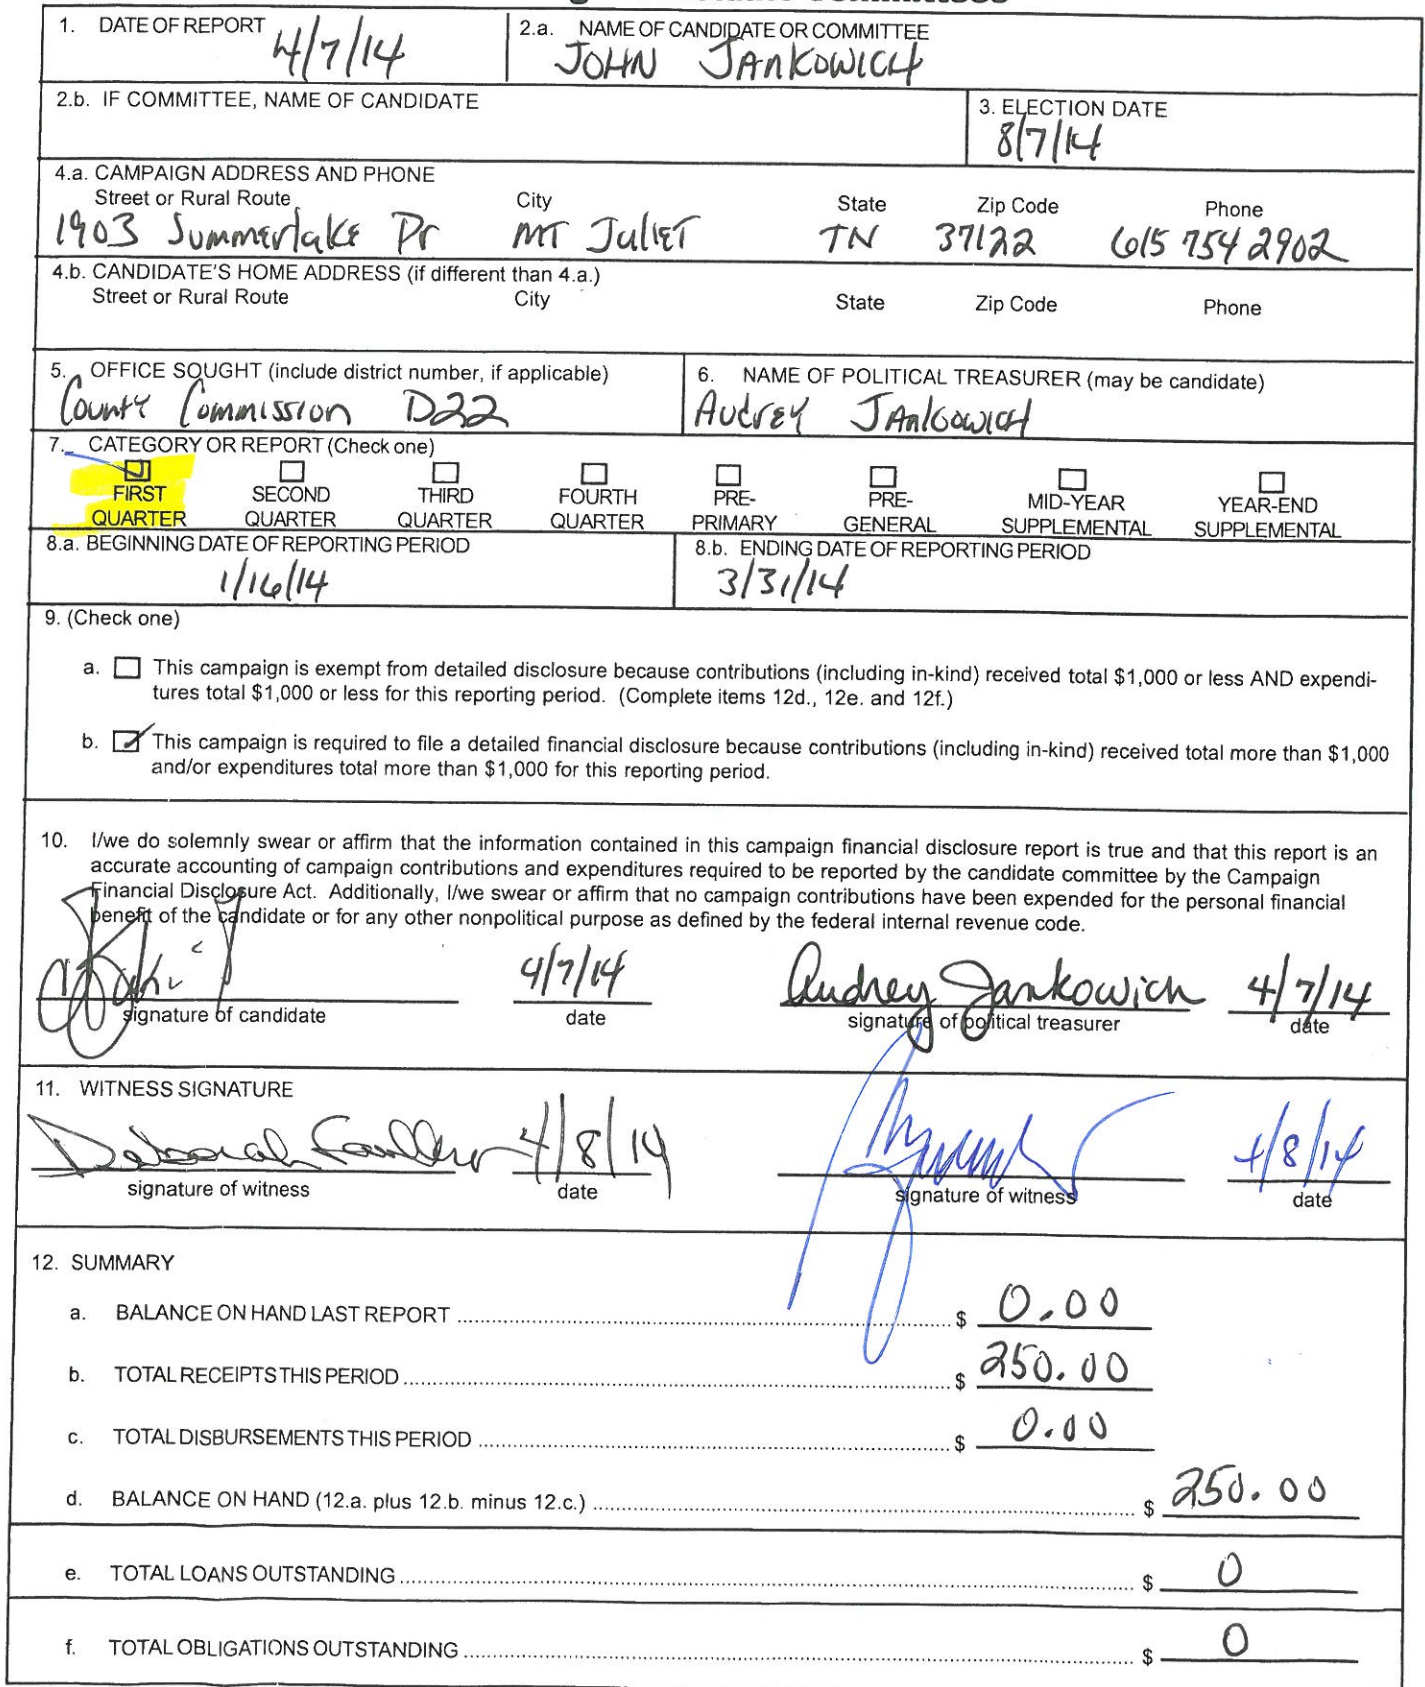 1. DATE OF REPORT 4/7/14
2.a. NAME OF CANDIDATE OR COMMITTEE
JOHN JANKOWICH
2.b. IF COMMITTEE, NAME OF CANDIDATE
3. ELECTION DATE
8/7/14
4.a. CAMPAIGN ADDRESS AND PHONE
Street or Rural Route City State Zip Code Phone
1903 Summerlake Dr MT Juliet TN 37122 615 754 2902
4.b. CANDIDATE'S HOME ADDRESS (if different than 4.a.)
Street or Rural Route City State Zip Code Phone
5. OFFICE SOUGHT (include district number, if applicable)
County Commission D22
6. NAME OF POLITICAL TREASURER (may be candidate)
Audrey Jankowich
7. CATEGORY OR REPORT (Check one)
FIRST QUARTER
SECOND QUARTER
THIRD QUARTER
FOURTH QUARTER
PRE-PRIMARY
PRE-GENERAL
MID-YEAR SUPPLEMENTAL
YEAR-END SUPPLEMENTAL
8.a. BEGINNING DATE OF REPORTING PERIOD
1/16/14
8.b. ENDING DATE OF REPORTING PERIOD
3/31/14
9. (Check one)
a. This campaign is exempt from detailed disclosure because contributions (including in-kind) received total $1,000 or less AND expendi-
tures total $1,000 or less for this reporting period. (Complete items 12d., 12e. and 12f.)
b. This campaign is required to file a detailed financial disclosure because contributions (including in-kind) received total more than $1,000
and/or expenditures total more than $1,000 for this reporting period.
10. I/we do solemnly swear or affirm that the information contained in this campaign financial disclosure report is true and that this report is an
accurate accounting of campaign contributions and expenditures required to be reported by the candidate committee by the Campaign
Financial Disclosure Act. Additionally, I/we swear or affirm that no campaign contributions have been expended for the personal financial
benefit of the candidate or for any other nonpolitical purpose as defined by the federal internal revenue code.
4/7/14 Audrey Jankowich 4/7/14
signature of candidate date signature of political treasurer date
11. WITNESS SIGNATURE
Deborah 4/8/14 4/8/14
signature of witness date signature of witness date
12. SUMMARY
a. BALANCE ON HAND LAST REPORT $ 0.00
b. TOTAL RECEIPTS THIS PERIOD $ 250.00
c. TOTAL DISBURSEMENTS THIS PERIOD $ 0.00
d. BALANCE ON HAND (12.a. plus 12.b. minus 12.c.) $ 250.00
e. TOTAL LOANS OUTSTANDING $ 0
f. TOTAL OBLIGATIONS OUTSTANDING $ 0